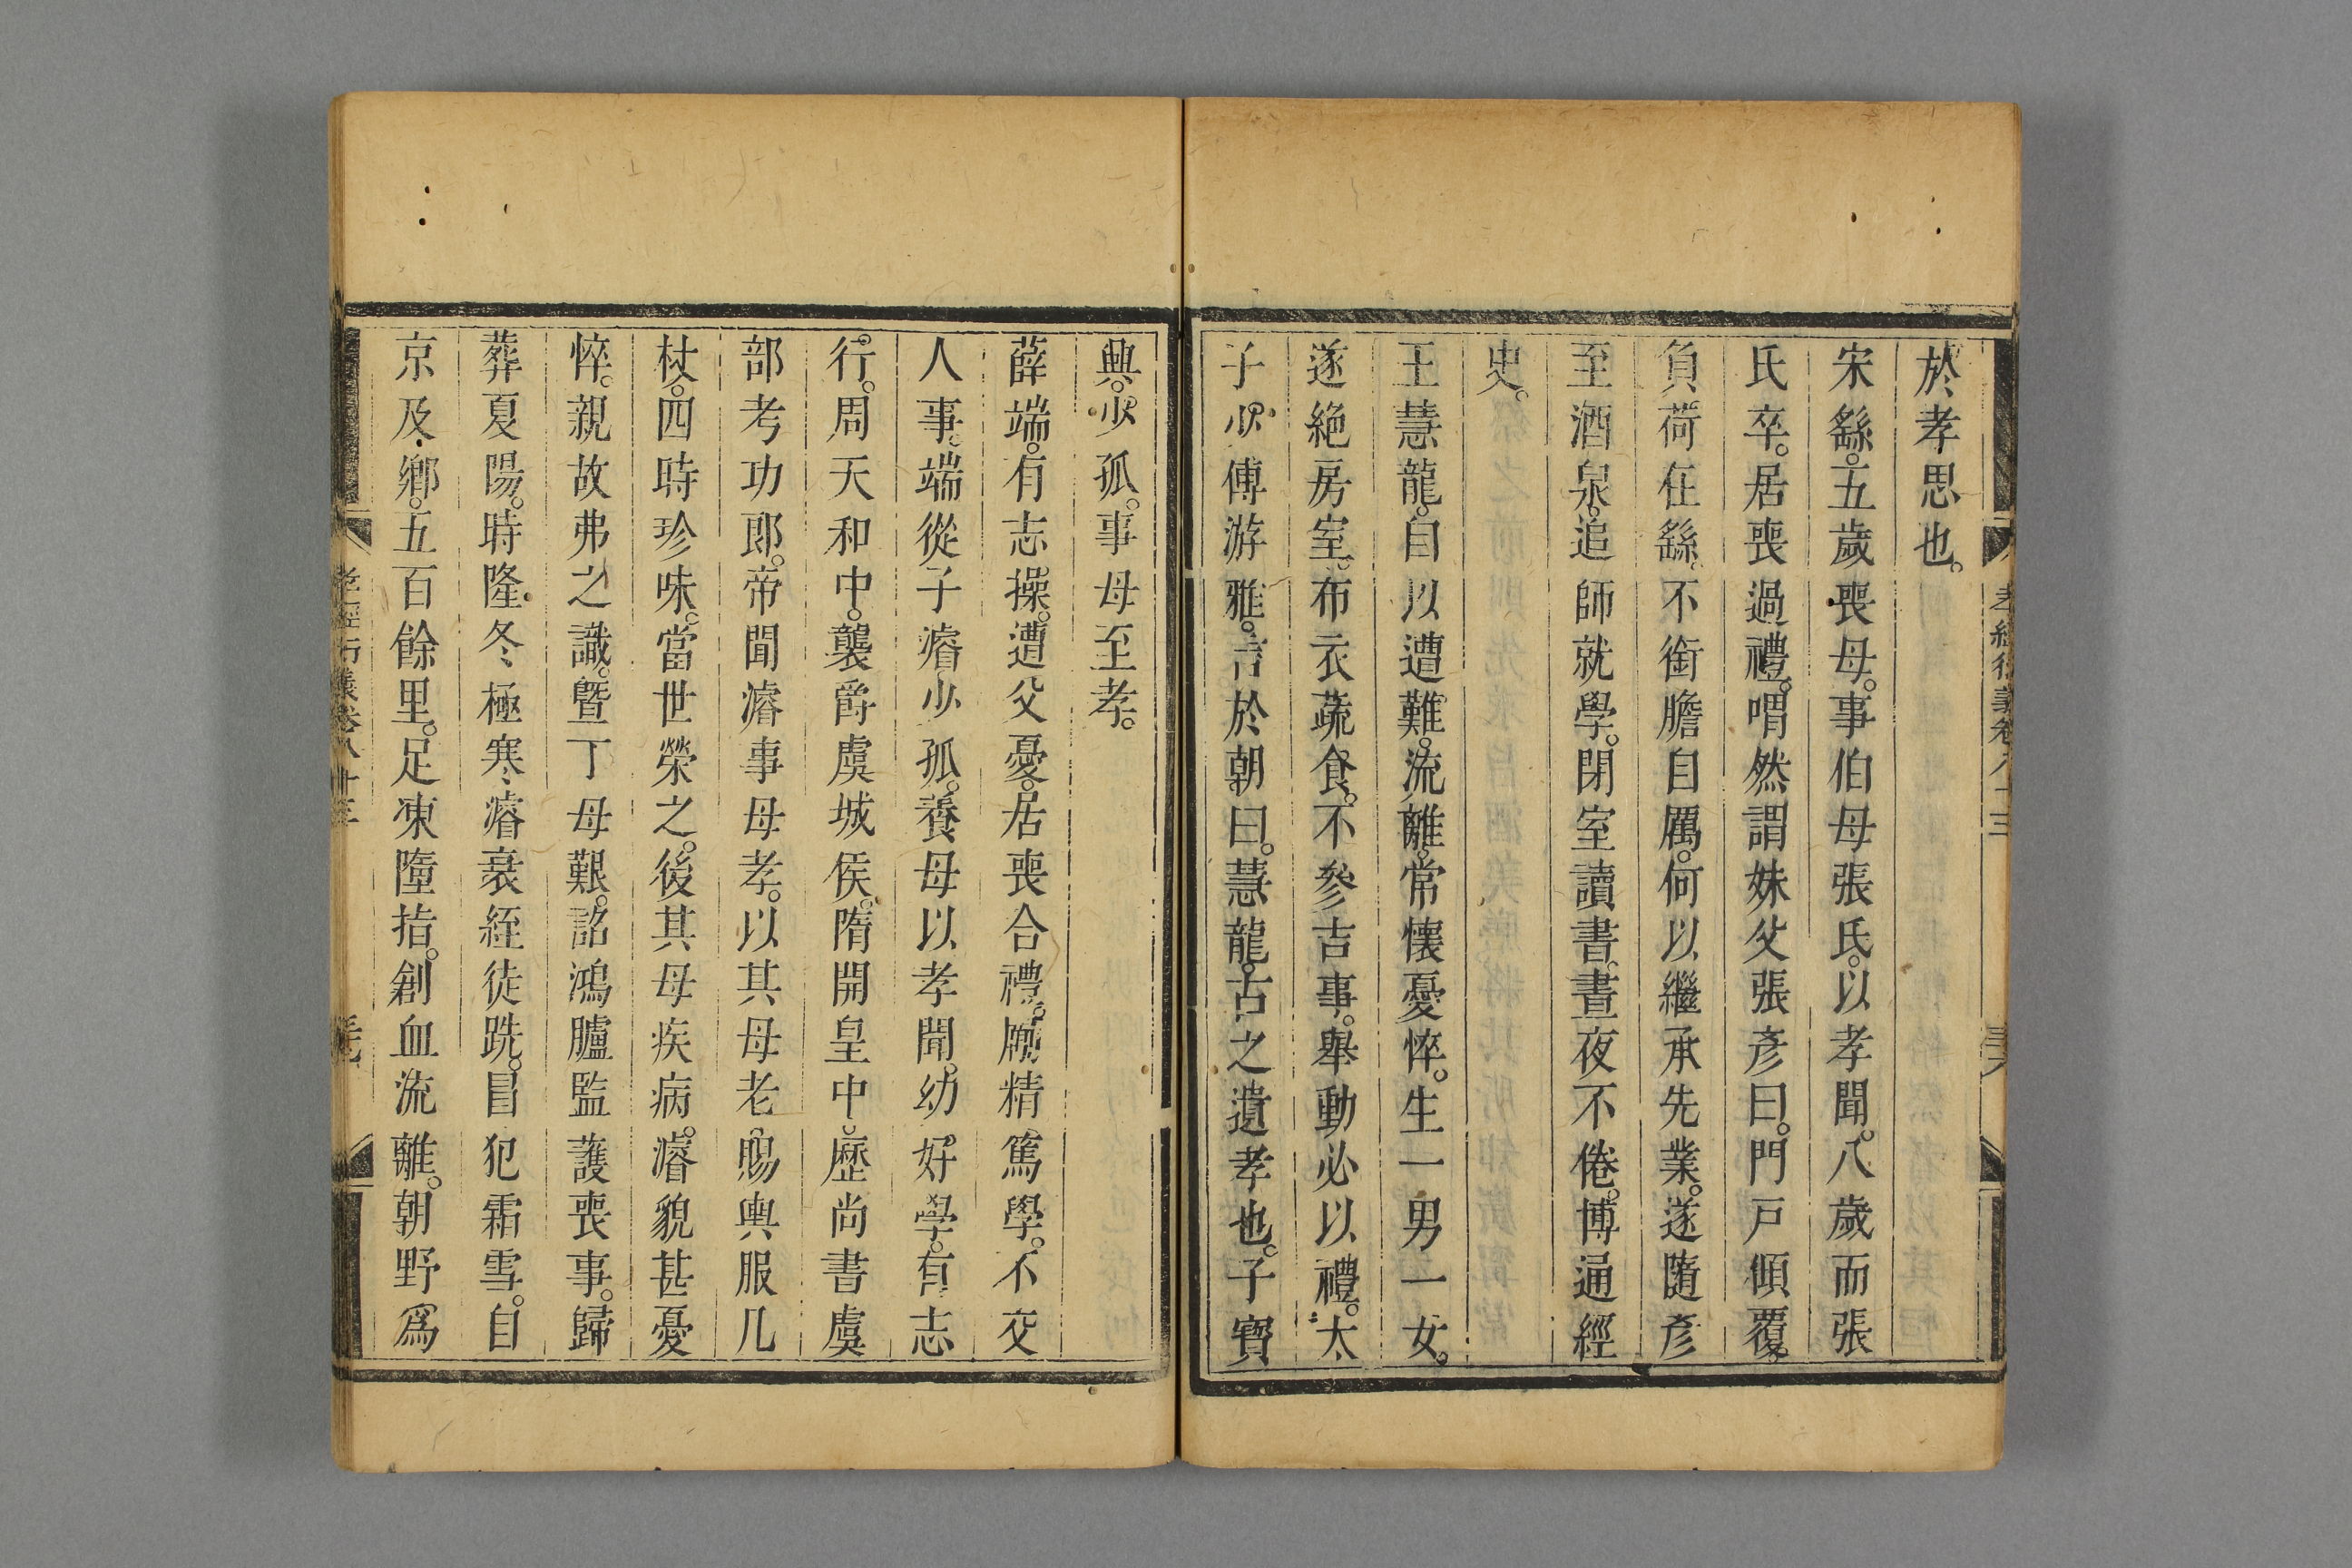 於孝思也。
宋繇。五歲喪母。事伯母張氏。以孝聞。八歲而張
氏卒。居喪過禮。喟然謂妹夫張彥曰。門戸傾覆。
負荷在繇。不銜膽自厲。何以繼承先業。遂隨彥
至酒泉。追師就學。閉室讀書。晝夜不倦。博通經
史。
王慧龍。自以遭難。流離。常懷憂悴。生一男一女。
遂絶房室。布衣蔬食。不參吉事。舉動必以禮。太
子少傅游雅。言於朝。曰。慧龍。古之遺孝也。子寶
興。少孤。事母至孝。
薛端。有志操。遭父憂。居喪合禮。勵精篤學。不交
人事。端從子濬少孤。養母以孝聞。幼好學。有志
行。周天和中。襲爵虞城侯。隋開皇中。歷尚書虞
部考功郎。帝聞濬事母孝。以其母老。賜輿服几
杖。四時珍味。當世榮之。後其母疾病。濬貌甚憂
悴。親故弗之識。曁丁母艱。詔鴻臚監護喪事。歸
葬夏陽。時隆冬極寒。濬衰絰徒跣。冒犯霜雪。自
京及鄉。五百餘里。足凍墮指。創血流離。朝野爲
孝經衍義卷八十三